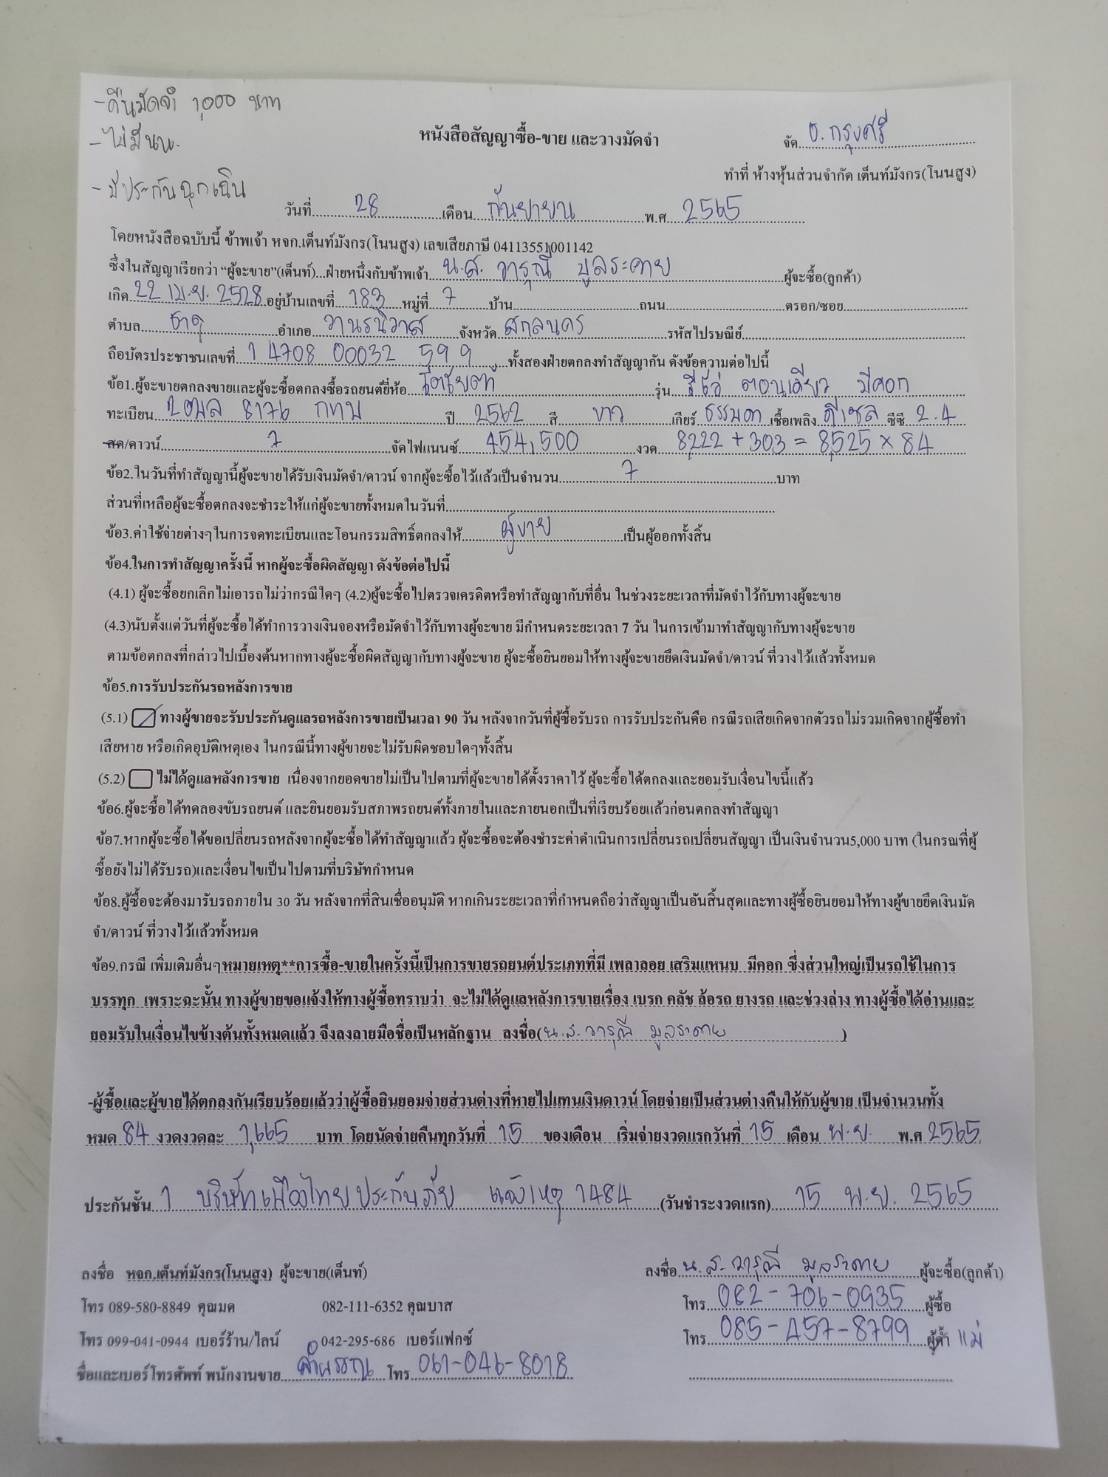 -คืนมัดจำ 1,000 บาท
-ไม่มีนน.
-มีประกันฉุกเฉิน
หนังสือสัญญาซื้อ-ขาย และวางมัดจำ
จัด ธ.กรุงศรี
ทำที่ ห้างหุ้นส่วนจำกัด เต็นท์มังกร(โนนสูง)
วันที่ 28 เดือน กันยายน พ.ศ 2565
โดยหนังสือฉบับนี้ ข้าพเจ้า หจก.เต็นท์มังกร(โนนสูง) เลขเสียภาษี 04113551001142
ซึ่งในสัญญาเรียกว่า "ผู้จะขาย"(เต็นท์)...ฝ่ายหนึ่งกับข้าพเจ้า น.ส. วารุณี มูลระคาย ผู้จะซื้อ(ลูกค้า)
เกิด 22 เม.ย. 2528 อยู่บ้านเลขที่ 183 หมู่ที่ 7 บ้าน ถนน ตรอก/ซอย
ตำบล ธาตุ อำเภอ วานรนิวาส จังหวัด สกลนคร รหัสไปรษณีย์
ถือบัตรประชาชนเลขที่ 1 4708 00032 599 ทั้งสองฝ่ายตกลงทำสัญญากัน ดังข้อความต่อไปนี้
ข้อ1.ผู้จะขายตกลงขายและผู้จะซื้อตกลงซื้อรถยนต์ยี่ห้อ โตโยต้า รุ่น รีโว่ ตอนเดียว มีคอก
ทะเบียน 2ฒล 8176 กทม ปี 2562 สี ขาว เกียร์ ธรรมดา เชื้อเพลิง ดีเซล ซีซี 2.4
สด/ดาวน์ 7 จัดไฟแนนซ์ 454,500 งวด 8,222 + 303 = 8,525 × 84
ข้อ2.ในวันที่ทำสัญญานี้ผู้จะขายได้รับเงินมัดจำ/ดาวน์ จากผู้จะซื้อไว้แล้วเป็นจำนวน 7 บาท
ส่วนที่เหลือผู้จะซื้อตกลงจะชำระให้แก่ผู้จะขายทั้งหมดในวันที่
ข้อ3.ค่าใช้จ่ายต่างๆในการจดทะเบียนและโอนกรรมสิทธิ์ตกลงให้ ผู้ขาย เป็นผู้ออกทั้งสิ้น
ข้อ4.ในการทำสัญญาครั้งนี้ หากผู้จะซื้อผิดสัญญา ดังข้อต่อไปนี้
(4.1) ผู้จะซื้อยกเลิกไม่เอารถไม่ว่ากรณีใดๆ (4.2)ผู้จะซื้อไปตรวจเครดิตหรือทำสัญญากับที่อื่น ในช่วงระยะเวลาที่มัดจำไว้กับทางผู้จะขาย
(4.3)นับตั้งแต่วันที่ผู้จะซื้อได้ทำการวางเงินจองหรือมัดจำไว้กับทางผู้จะขาย มีกำหนดระยะเวลา 7 วัน ในการเข้ามาทำสัญญากับทางผู้จะขาย
ตามข้อตกลงที่กล่าวไปเบื้องต้นหากทางผู้จะซื้อผิดสัญญากับทางผู้จะขาย ผู้จะซื้อยินยอมให้ทางผู้จะขายยึดเงินมัดจำ/ดาวน์ ที่วางไว้แล้วทั้งหมด
ข้อ5.การรับประกันรถหลังการขาย
(5.1) ทางผู้ขายจะรับประกันดูแลรถหลังการขายเป็นเวลา 90 วัน หลังจากวันที่ผู้ซื้อรับรถ การรับประกันคือ กรณีรถเสียเกิดจากตัวรถไม่รวมเกิดจากผู้ซื้อทำ
เสียหาย หรือเกิดอุบัติเหตุเอง ในกรณีนี้ทางผู้ขายจะไม่รับผิดชอบใดๆทั้งสิ้น
(5.2) ไม่ได้ดูแลหลังการขาย เนื่องจากยอดขายไม่เป็นไปตามที่ผู้จะขายได้ตั้งราคาไว้ ผู้จะซื้อได้ตกลงและยอมรับเงื่อนไขนี้แล้ว
ข้อ6.ผู้จะซื้อได้ทดลองขับรถยนต์ และยินยอมรับสภาพรถยนต์ทั้งภายในและภายนอกเป็นที่เรียบร้อยแล้วก่อนตกลงทำสัญญา
ข้อ7.หากผู้จะซื้อได้ขอเปลี่ยนรถหลังจากผู้จะซื้อได้ทำสัญญาแล้ว ผู้จะซื้อจะต้องชำระค่าดำเนินการเปลี่ยนรถเปลี่ยนสัญญา เป็นเงินจำนวน5,000 บาท (ในกรณที่ผู้
ซื้อยังไม่ได้รับรถ)และเงื่อนไขเป็นไปตามที่บริษัทกำหนด
ข้อ8.ผู้ซื้อจะต้องมารับรถภายใน 30 วัน หลังจากที่สินเชื่ออนุมัติ หากเกินระยะเวลาที่กำหนดถือว่าสัญญาเป็นอันสิ้นสุดและทางผู้ซื้อยินยอมให้ทางผู้ขายยึดเงินมัด
จำ/ดาวน์ ที่วางไว้แล้วทั้งหมด
ข้อ9.กรณี เพิ่มเติมอื่นๆหมายเหตุ**การซื้อ-ขายในครั้งนี้เป็นการขายรถยนต์ประเภทที่มี เพลาลอย เสริมแหนบ มีคอก ซึ่งส่วนใหญ่เป็นรถใช้ในการ
บรรทุก เพราะฉะนั้น ทางผู้ขายขอแจ้งให้ทางผู้ซื้อทราบว่า จะไม่ได้ดูแลหลังการขายเรื่อง เบรก คลัช ล้อรถ ยางรถ และช่วงล่าง ทางผู้ซื้อได้อ่านและ
ยอมรับในเงื่อนไขข้างต้นทั้งหมดแล้ว จึงลงลายมือชื่อเป็นหลักฐาน ลงชื่อ( น.ส. วารุณี มูลระคาย )
-ผู้ซื้อและผู้ขายได้ตกลงกันเรียบร้อยแล้วว่าผู้ซื้อยินยอมจ่ายส่วนต่างที่หายไปแทนเงินดาวน์ โดยจ่ายเป็นส่วนต่างคืนให้กับผู้ขาย เป็นจำนวนทั้ง
หมด 84 งวดงวดละ 1,665 บาท โดยนัดจ่ายคืนทุกวันที่ 15 ของเดือน เริ่มจ่ายงวดแรกวันที่ 15 เดือน พ.ย. พ.ศ 2565
ประกันชั้น 1 บริษัท เมืองไทยประกันภัย แจ้งเหตุ 1484 (วันชำระงวดแรก) 15 พ.ย. 2565
ลงชื่อ หจก.เต็นท์มังกร(โนนสูง) ผู้จะขาย(เต็นท์) ลงชื่อ น.ส. วารุณี มูลระคาย ผู้จะซื้อ(ลูกค้า)
โทร 089-580-8849 คุณมด 082-111-6352 คุณบาส โทร 082-706-0935 ผู้ซื้อ
โทร 099-041-0944 เบอร์ร้าน/ไลน์ 042-295-686 เบอร์แฟกซ์ โทร 085-457-8799 ผู้ค้ำ แม่
ชื่อและเบอร์โทรศัพท์ พนักงานขาย โทร 061-046-8018